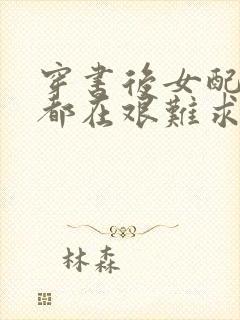 穿书後女配
都在艰難求
林森